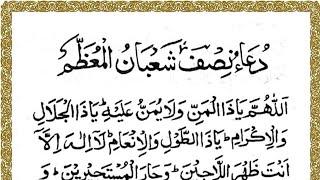 دُعَاءُ نِصْفِ شَعْبَانُ الْمُعَظَّمْ
اَللّٰهُمَّ يَاذَا الْمَنِّ وَلَا يُمَنُّ عَلَيْهِ يَاذَا الْجَلَالِ
وَالْاِكْرَامِ يَاذَا الطَّوْلِ وَالْاِنْعَامِ لَآ اِلٰهَ اِلَّآ
اَنْتَ ظَهْرُ اللَّاجِئِيْنَ وَجَارُ الْمُسْتَجِيْرِيْنَ وَ